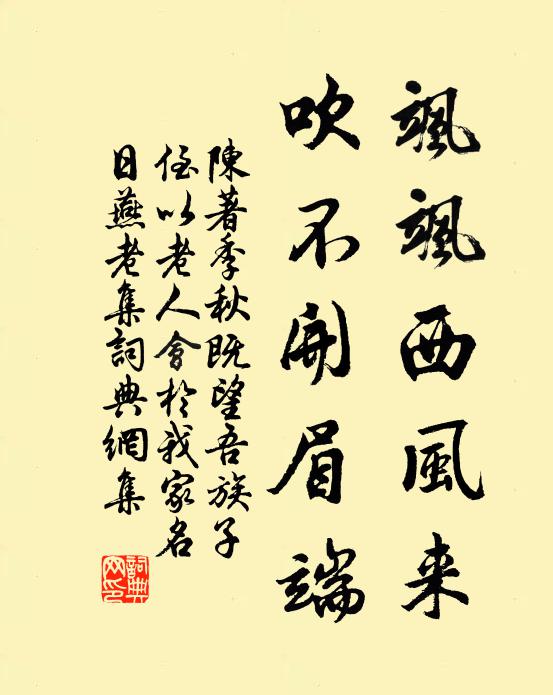 颯颯西風来
吹不開眉端
陳著季秋既望吾族子
侄以老人會於我家名
日燕老集詞典網集
詞典
网印